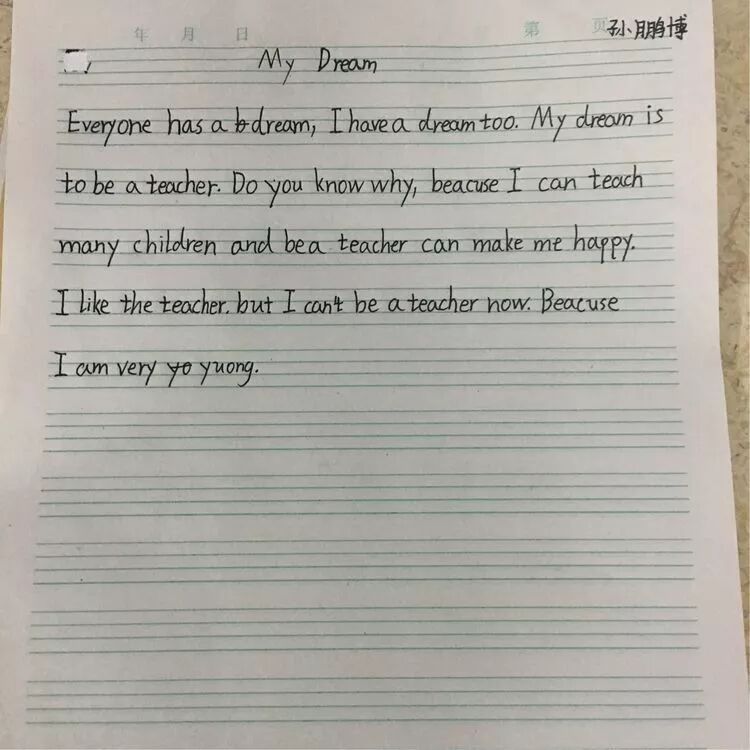 年 月 日 第 页 孙鹏博
My Dream
Everyone has a dream, I have a dream too. My dream is
to be a teacher. Do you know why, beacuse I can teach
many children and be a teacher can make me happy.
I like the teacher. but I can't be a teacher now. Beacuse
I am very yuong.